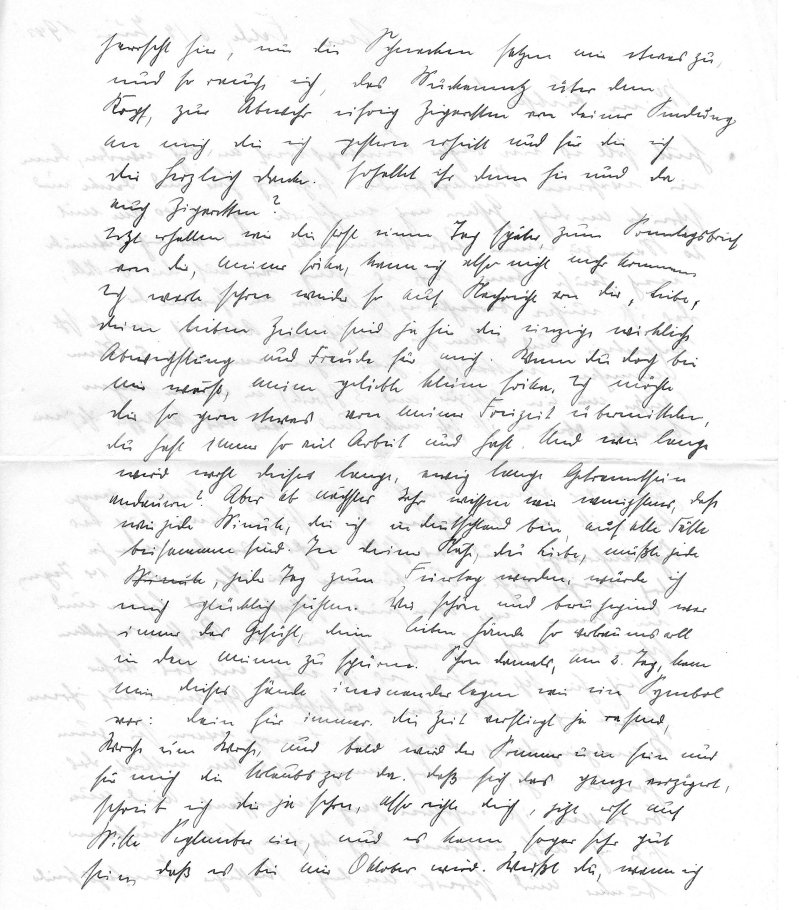 herrscht hier, nur die Schnecken setzen mir etwas zu,
und so rauche ich, das Mückennetz über dem
Kopf, zur Abwehr eifrig Zigaretten von deiner Sendung
an mich die ich gestern erhielt und für die ich
dir herzlich danke. Erhaltet ihr denn hie und da
auch Zigaretten?
Jetzt erhalten wir die Post einen Tag später, zum Sonntagsbrief
von dir, meiner Erika, kann ich also nicht mehr kommen
Ich warte schon wieder so auf Nachricht von dir, Liebe,
deine lieben Zeilen sind ja hier die einzige wirkliche
Abwechslung und Freude für mich. Wenn du doch bei
mir wärst, meine geliebte kleine Erika. Ich möchte
dir so gern etwas von meiner Freizeit übermitteln,
du hast immer so viel Arbeit und Hast. Und wie lange
wird wohl dieses lange, ewig lange Getrenntsein
andauern? Aber ab nächstes Jahr wissen wir wenigstens, daß
wir jede Minute, die ich in Deutschland bin, auf alle Fälle
beisammen sind. In deiner Nähe, du Liebe, müßte jede
Minute, jeder Tag zum Feiertag werden, würde ich
mich glücklich fühlen. Wie schön und beruhigend war
immer das Gefühl, deine lieben Hände so vertrauensvoll
in den meinen zu spüren. Schon damals, am 2. Tag, kam
mir dieses Hände ineinanderlegen wie ein Symbol
vor: dein für immer. Die Zeit verfliegt ja rasend,
Woche um Woche, und bald wird der Sommer um sein und
für mich die Urlaubszeit da. Daß sich das ganze verzögert,
schrieb ich dir ja schon, also richte dich, jetzt erst auf
Mitte September ein, und es kann sogar sehr gut
sein, daß es bei mir Oktober wird. Weißt du, wenn ich